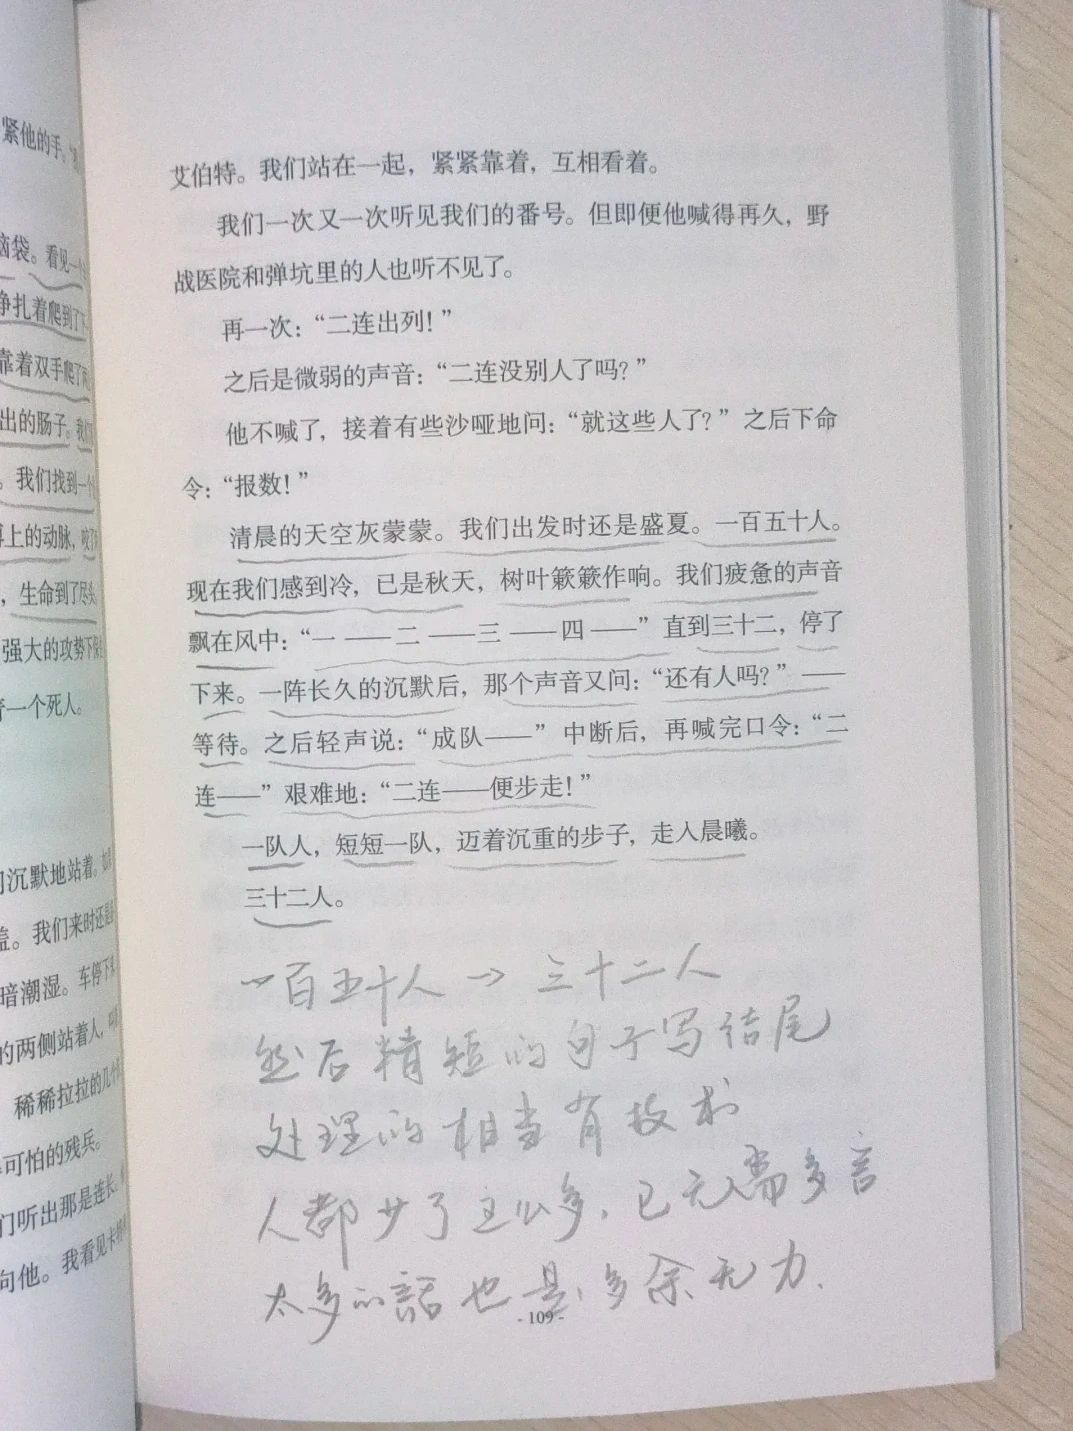 紧他的手。
脑袋。看见一个
挣扎着爬到了下
靠着双手爬了两
出的肠子。我们
。我们找到一个
膊上的动脉，咬了
，生命到了尽头
强大的攻势下保
一个死人。
们沉默地站着。如
盖。我们来时还是
暗潮湿。车停下来
的两侧站着人，叫
稀稀拉拉的几个
可怕的残兵。
们听出那是连长。
向他。我看见卡
艾伯特。我们站在一起，紧紧靠着，互相看着。
我们一次又一次听见我们的番号。但即便他喊得再久，野
战医院和弹坑里的人也听不见了。
再一次：“二连出列！”
之后是微弱的声音：“二连没别人了吗？”
他不喊了，接着有些沙哑地问：“就这些人了？”之后下命
令：“报数！”
清晨的天空灰蒙蒙。我们出发时还是盛夏。一百五十人。
现在我们感到冷，已是秋天，树叶簌簌作响。我们疲惫的声音
飘在风中：“一 —— 二 —— 三 —— 四 ——”直到三十二，停了
下来。一阵长久的沉默后，那个声音又问：“还有人吗？”——
等待。之后轻声说：“成队——”中断后，再喊完口令：“二
连——”艰难地：“二连——便步走！”
一队人，短短一队，迈着沉重的步子，走入晨曦。
三十二人。
一百五十人 → 三十二人
然后精短的句子写结尾
处理的相当有技术
人都少了这么多，已无需多言
太多的話也是多余无力.
- 109 -